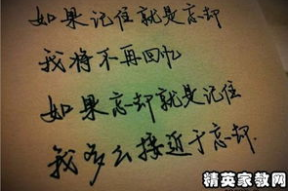 如果记住就是忘却
我将不再回忆
如果忘却就是记住
我多么接近于忘却.
精英家教网